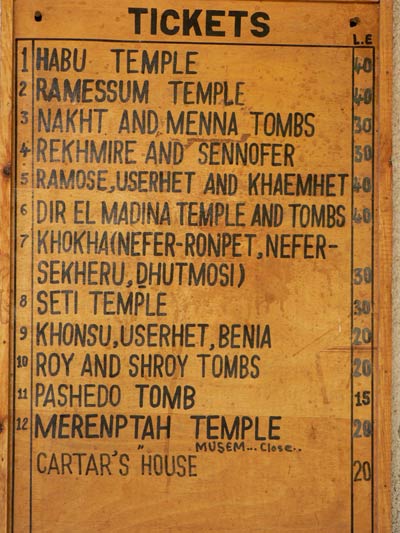 TICKETS
L.E
1 HABU TEMPLE 40
2 RAMESSUM TEMPLE 40
3 NAKHT AND MENNA TOMBS 30
4 REKHMIRE AND SENNOFER 30
5 RAMOSE,USERHET AND KHAEMHET 40
6 DIR EL MADINA TEMPLE AND TOMBS 40
7 KHOKHA(NEFER-RONPET,NEFER-
SEKHERU,DHUTMOSI) 30
8 SETI TEMPLE 30
9 KHONSU,USERHET,BENIA 20
10 ROY AND SHROY TOMBS 20
11 PASHEDO TOMB 15
12 MERENPTAH TEMPLE 20
MUSEM...Close..
CARTAR'S "HOUSE 20